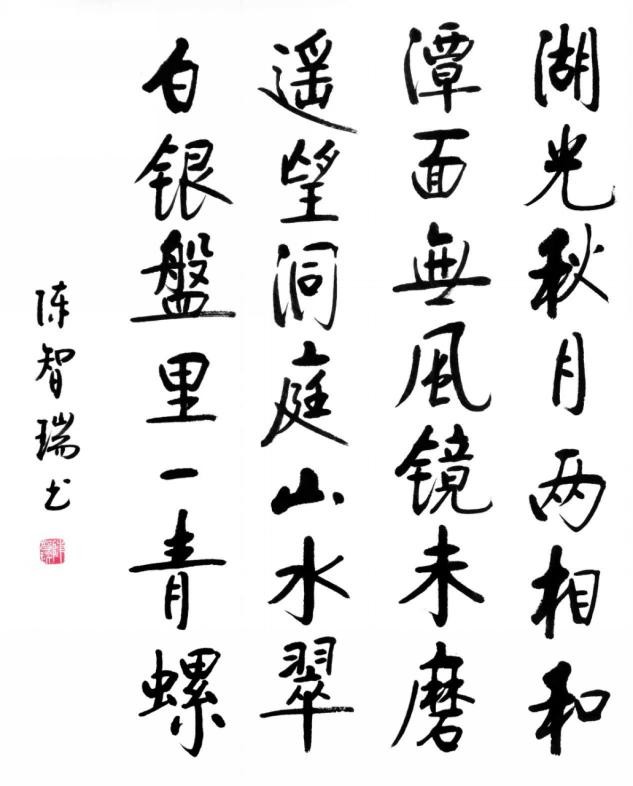 湖光秋月两相和
潭面無風镜未磨
遥望洞庭山水翠
白银盤里一青螺
陈智瑞书